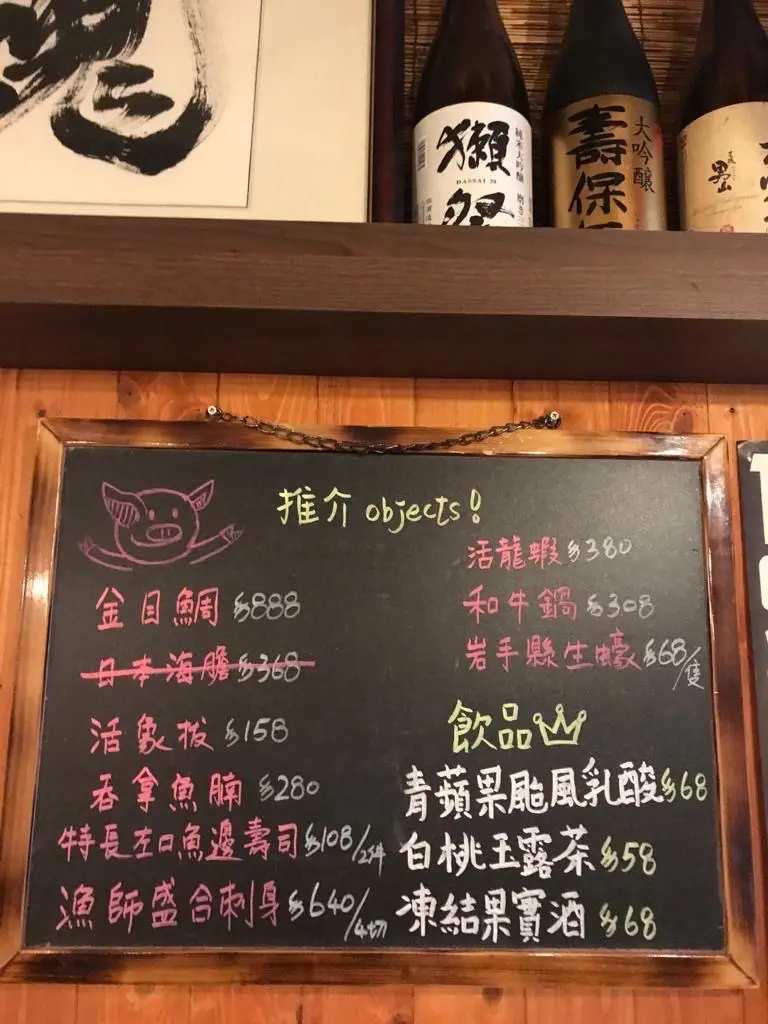 魂
純米大吟醸
獺祭
DASSAI
磨き三
大吟醸
壽保年
男山
推介 objects!
金目鯛 $888
日本海膽 $368
活象拔 $158
吞拿魚腩 $280
特長左口魚邊壽司 $108/2件
漁師盛合刺身 $640/4切
活龍蝦 $380
和牛鍋 $308
岩手縣生蠔 $68/隻
飲品
青蘋果颱風乳酸 $68
白桃玉露茶 $58
凍結果實酒 $68